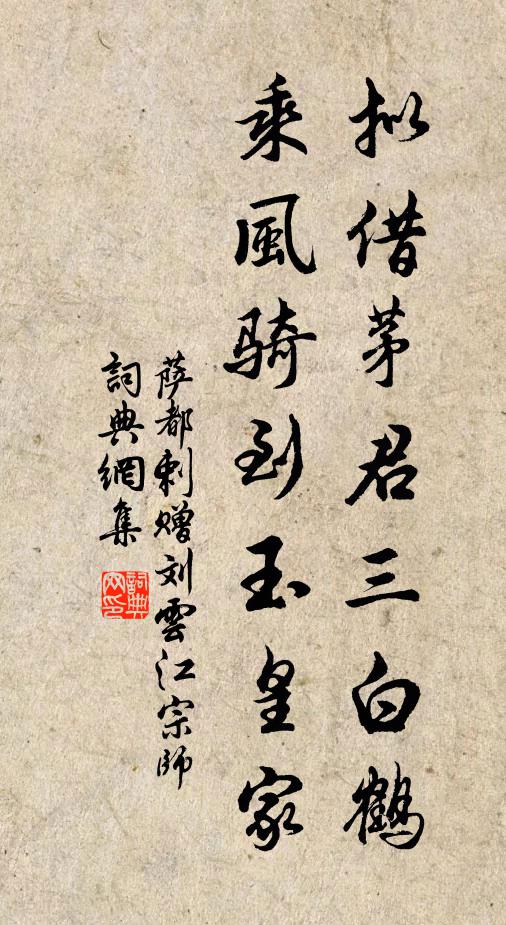 拟借茅君三白鶴
乘風骑到玉皇家
萨都剌赠刘雲江宗師
詞典網集
詞典网印